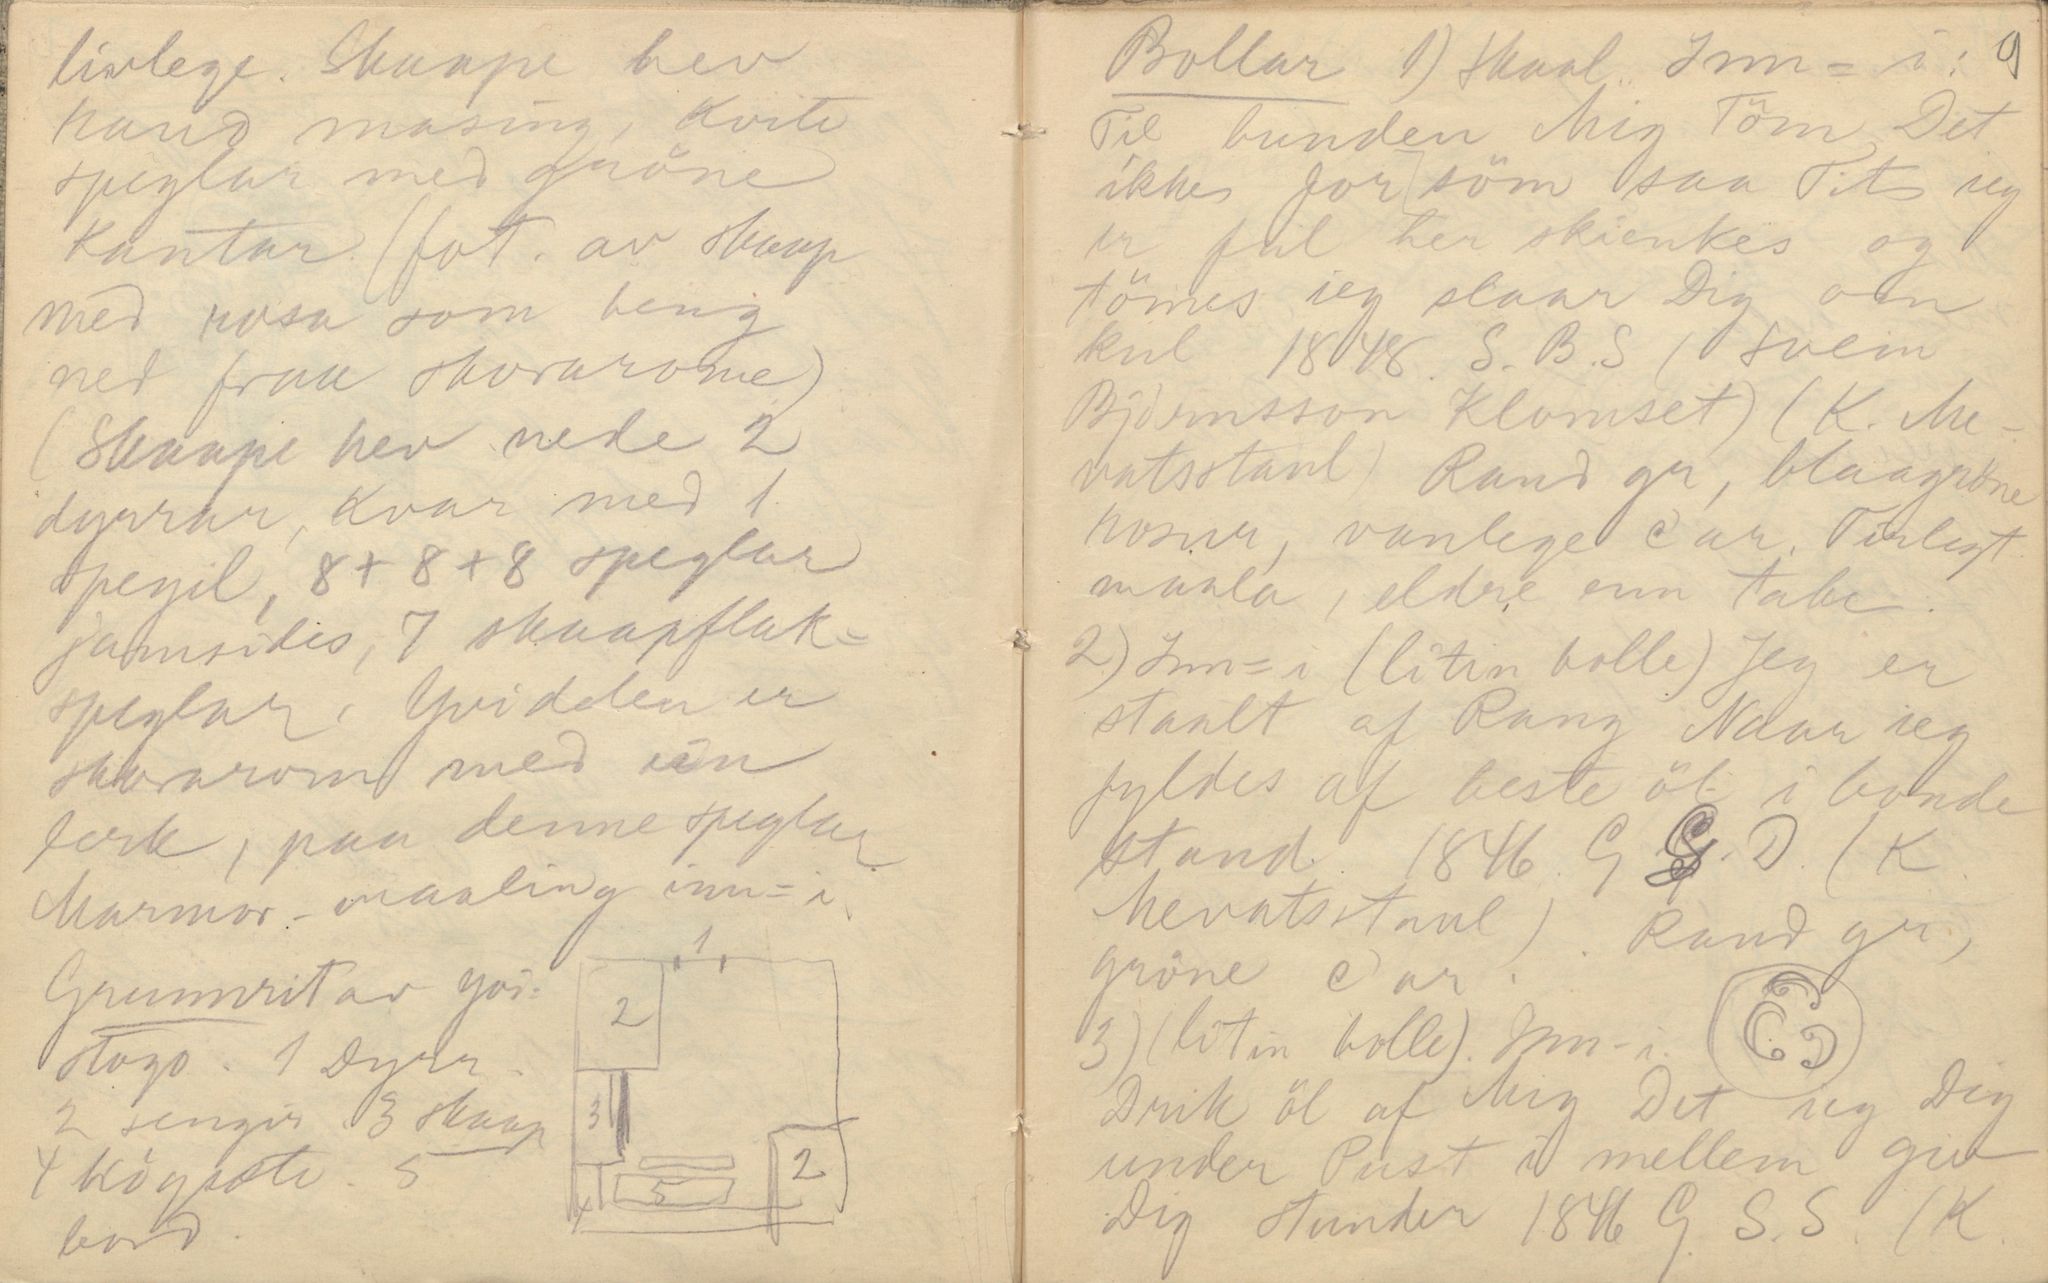 livlege. Skaape hev
raud masing, kvite
speglar med gröne
Kantar (fot. av skaap
med rosa som heng
ned fraa skorarone)
(Skaape hev nede 2
dyrrar, kvar med 1
spegil, 8 + 8 + 8 speglar
jamsides, 7 skaapflak-
speglar. Gvidden er
skorarom med ein
lerk, paa denne speglar
Marmor-maaling inn-i.
Grunnrit av
stogo. 1 Dyrr.
2 sengir 3 skaap
4 Högsete. 5
bord.
1
2
3
2
5
4
9
Bollar 1) Skaal. Inn-i:
Til bunden Mig Töm Det
ikkes for söm saa Tits ieg
er ful her skienkes og
tömes ieg slaar Dig om
kul 1848. S. B. S (Svein
Björnsson Klomset) (K. Me-
vatsstaul) Rand gr, blaagröne
rosur, vanlege C'ar. Tirlegt
maala, eldre enn take.
2) Inn-i (litin bolle) Jeg er
staalt af Rang Naar ieg
fyldes af beste öl i bonde
stand. 1846. G S. D. (K.
Mevatsstaul). Rand gr,
gröne C'ar.
3) (litin bolle). Inn-i.
Drik öl af Mig Det ieg Dig
under Pust i mellem giv
Dig stunder 1846 G. S. S. (K.